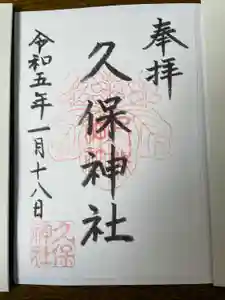 奉拝
久保神社
令和五年一月十八日
久保
神社